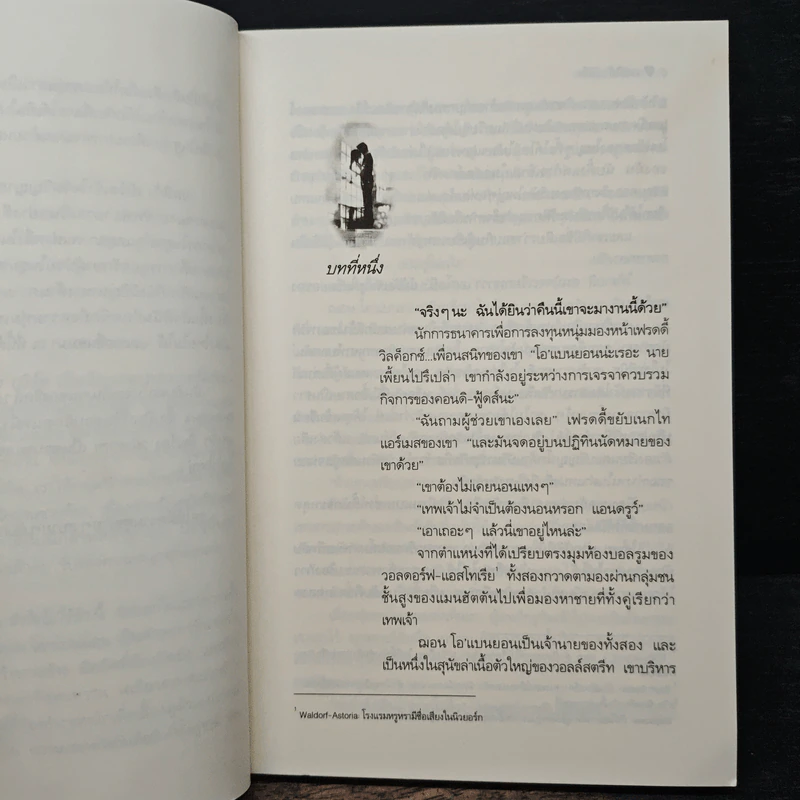 บทที่หนึ่ง
“จริงๆ นะ ฉันได้ยินว่าคืนนี้เขาจะมางานนี้ด้วย”
นักการธนาคารเพื่อการลงทุนหนุ่มมองหน้าเฟรดดี้
วิลค็อกซ์...เพื่อนสนิทของเขา “โอ’แบนยอนน่ะเรอะ นาย
เพี้ยนไปรึเปล่า เขากำลังอยู่ระหว่างการเจรจาควบรวม
กิจการของคอนดิ-ฟู้ดส์นะ”
“ฉันถามผู้ช่วยเขาเองเลย” เฟรดดี้ขยับเนกไท
แอร์เมสของเขา “และมันจดอยู่บนปฏิทินนัดหมายของ
เขาด้วย”
“เขาต้องไม่เคยนอนแหงๆ”
“เทพเจ้าไม่จำเป็นต้องนอนหรอก แอนดรูว์”
“เอาเถอะๆ แล้วนี่เขาอยู่ไหนล่ะ”
จากตำแหน่งที่ได้เปรียบตรงมุมห้องบอลรูมของ
วอลดอร์ฟ-แอสโทเรีย¹ ทั้งสองกวาดตามองผ่านกลุ่มชน
ชั้นสูงของแมนฮัตตันไปเพื่อมองหาชายที่ทั้งคู่เรียกว่า
เทพเจ้า
ฌอน โอ’แบนยอนเป็นเจ้านายของทั้งสอง และ
เป็นหนึ่งในสุนัขล่าเนื้อตัวใหญ่ของวอลล์สตรีท เขาบริหาร
¹ Waldorf-Astoria โรงแรมหรูหรามีชื่อเสียงในนิวยอร์ก